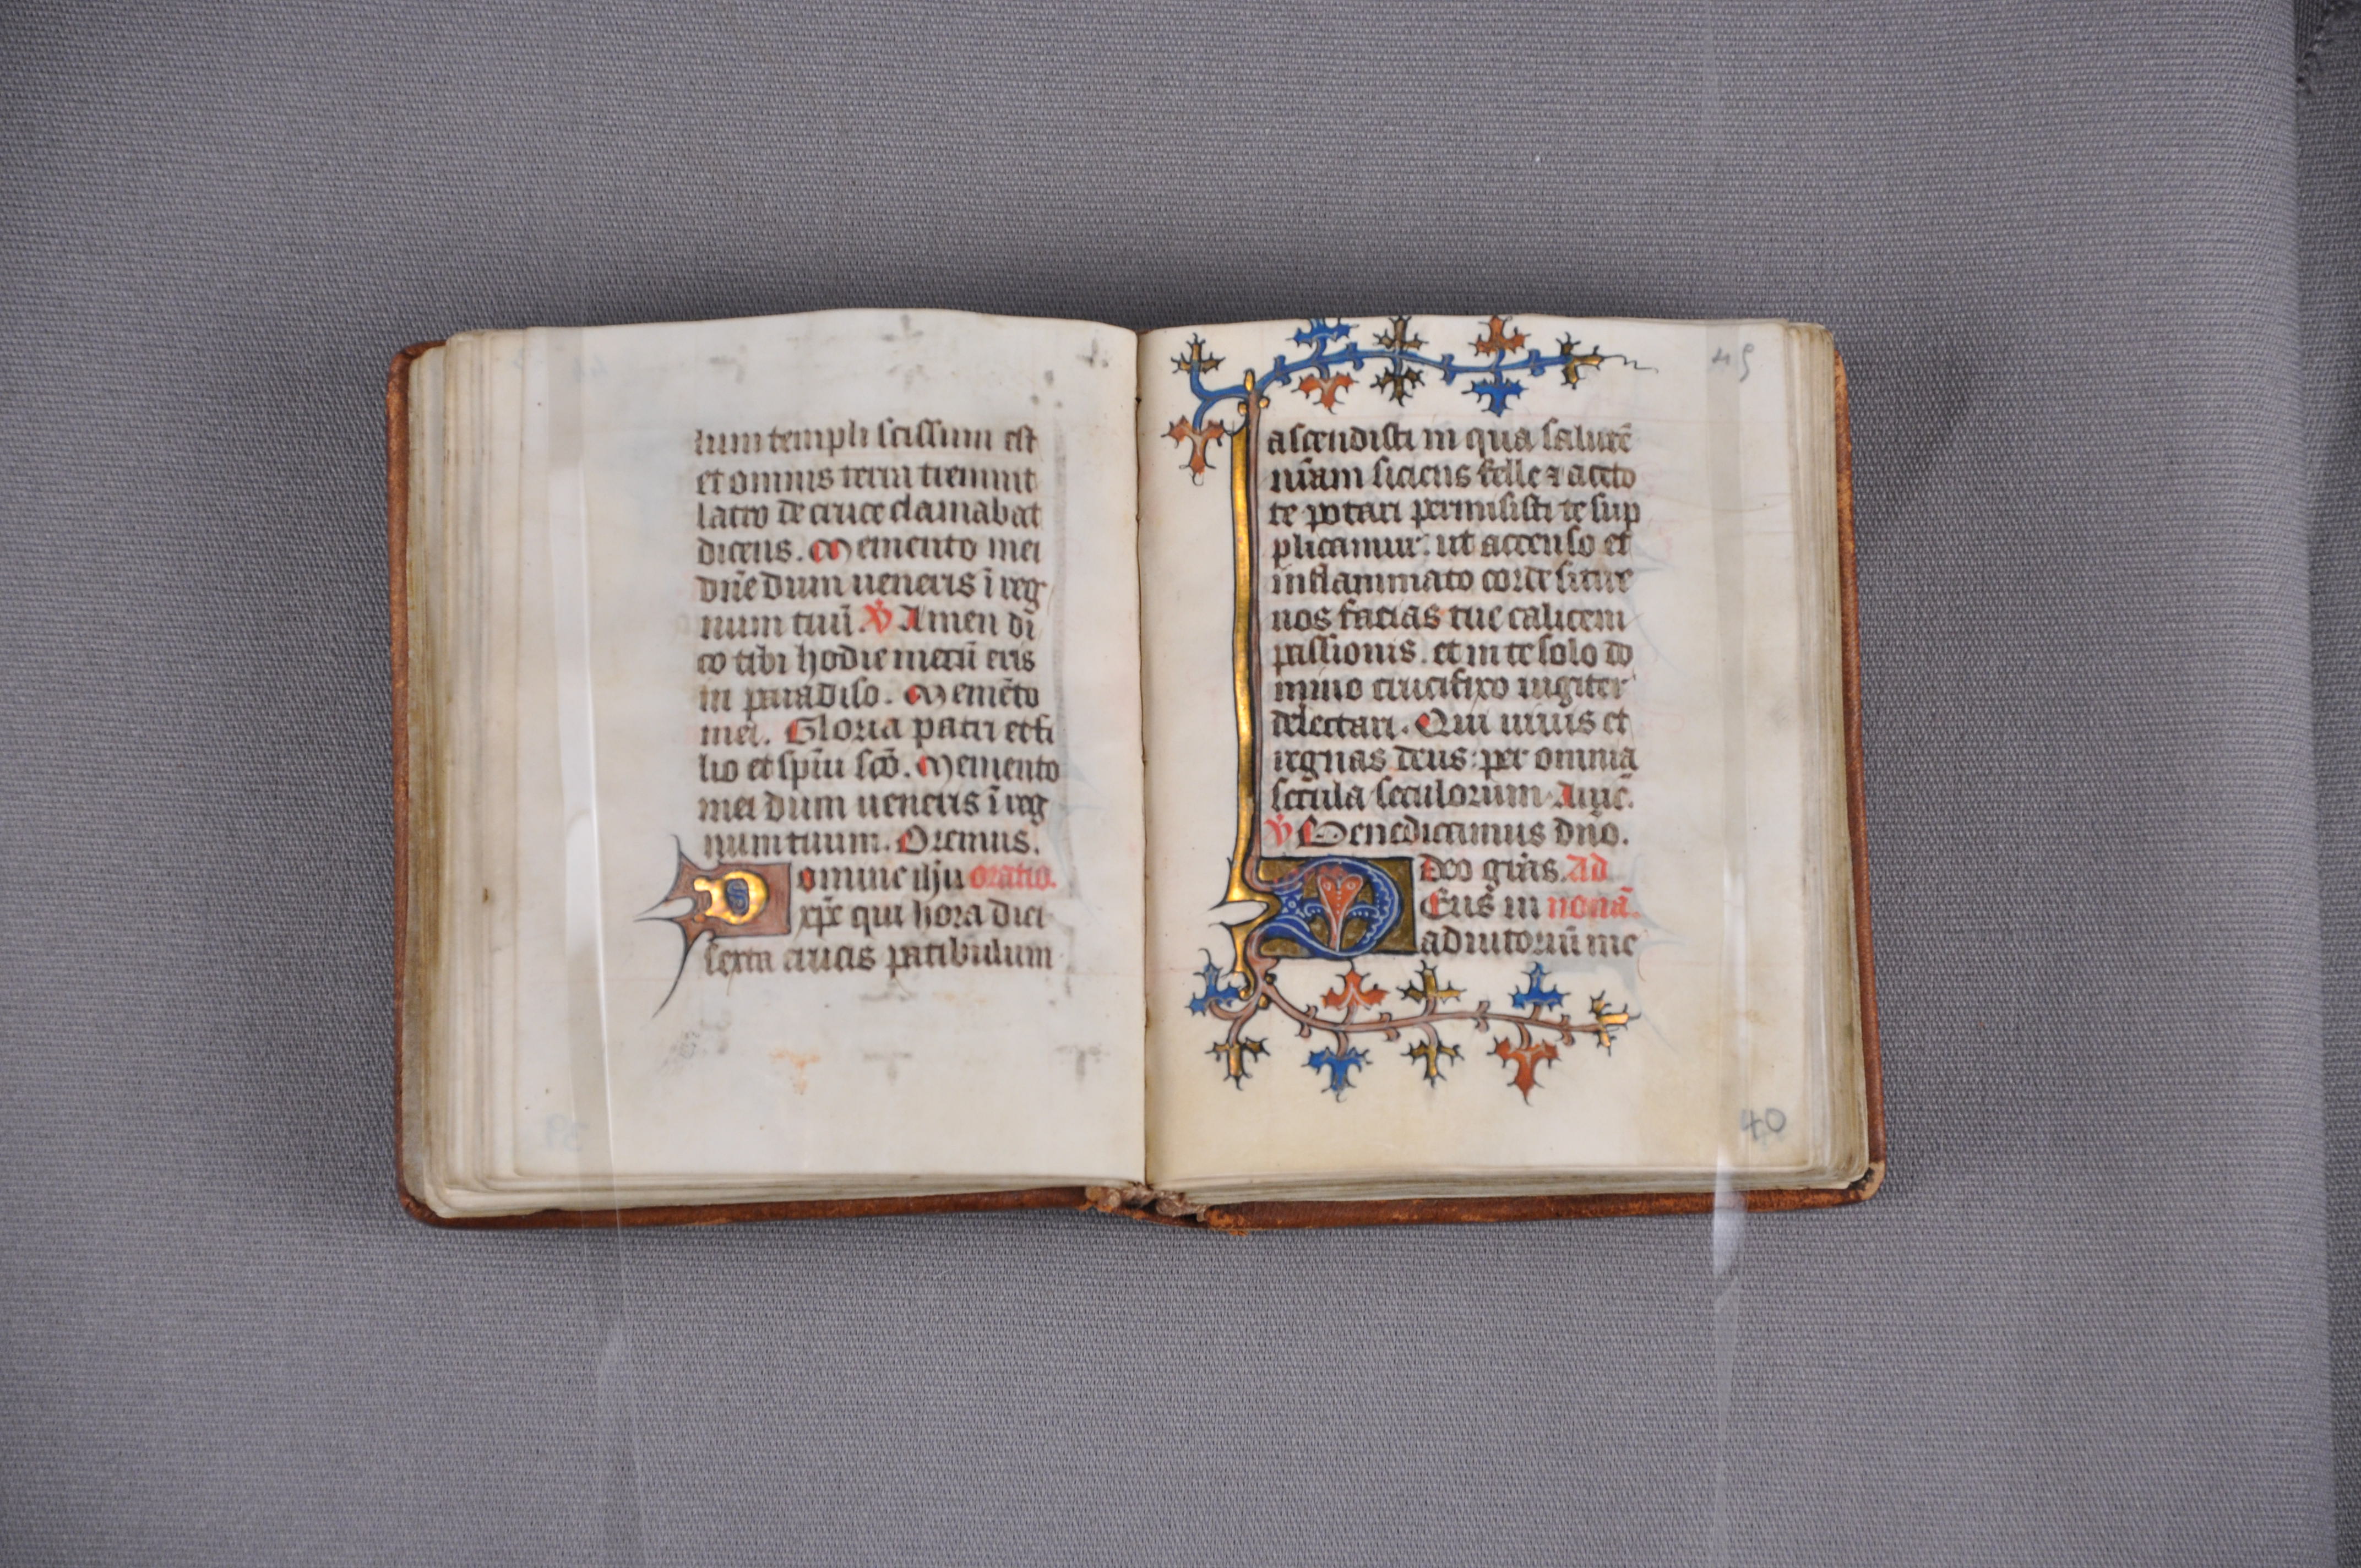 lum templi scissum est
et omnis terra tremuit
latro de cruce clamabat
dicens. Memento mei
dñe dum veneris ĩ reg
num tuũ. V̇ Amen di
co tibi hodie mecũ eris
in paradiso. Memẽto
mei. Gloria patri et fi
lio et spũi scõ. Memento
mei dum veneris ĩ reg
num tuum. Oremus.
Domine ihu oratio.
xp̃e qui hora diei
sexta crucis patibulum
45
ascendisti in qua salutẽ
nr̃am siciens felle ⁊ aceto
te potari permisisti te sup
plicamur. ut accenso et
inflammato corde sitire
nos facias tue calicem
passionis. et in te solo do
mino crucifixo iugiter
delectari. Qui vivis et
regnas deus: per omnia
secula seculorum. Amẽ.
V̇ Benedicamus dño.
Deo gr̃as. Ad
Deus in nonã.
adiutoriũ me
40